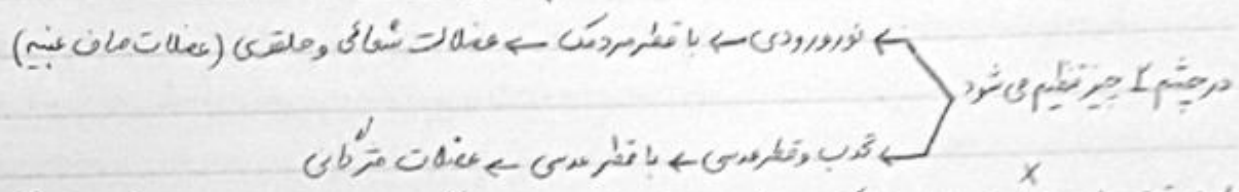 در چشم ۲ چیز تنظیم می شود
← نور ورودی ← با قطر مردمک ← عضلات شعاعی و حلقوی (عضلات صاف عنبیه)
← تحدب و قطر عدسی ← با قطر عدسی ← عضلات مژگانی
x